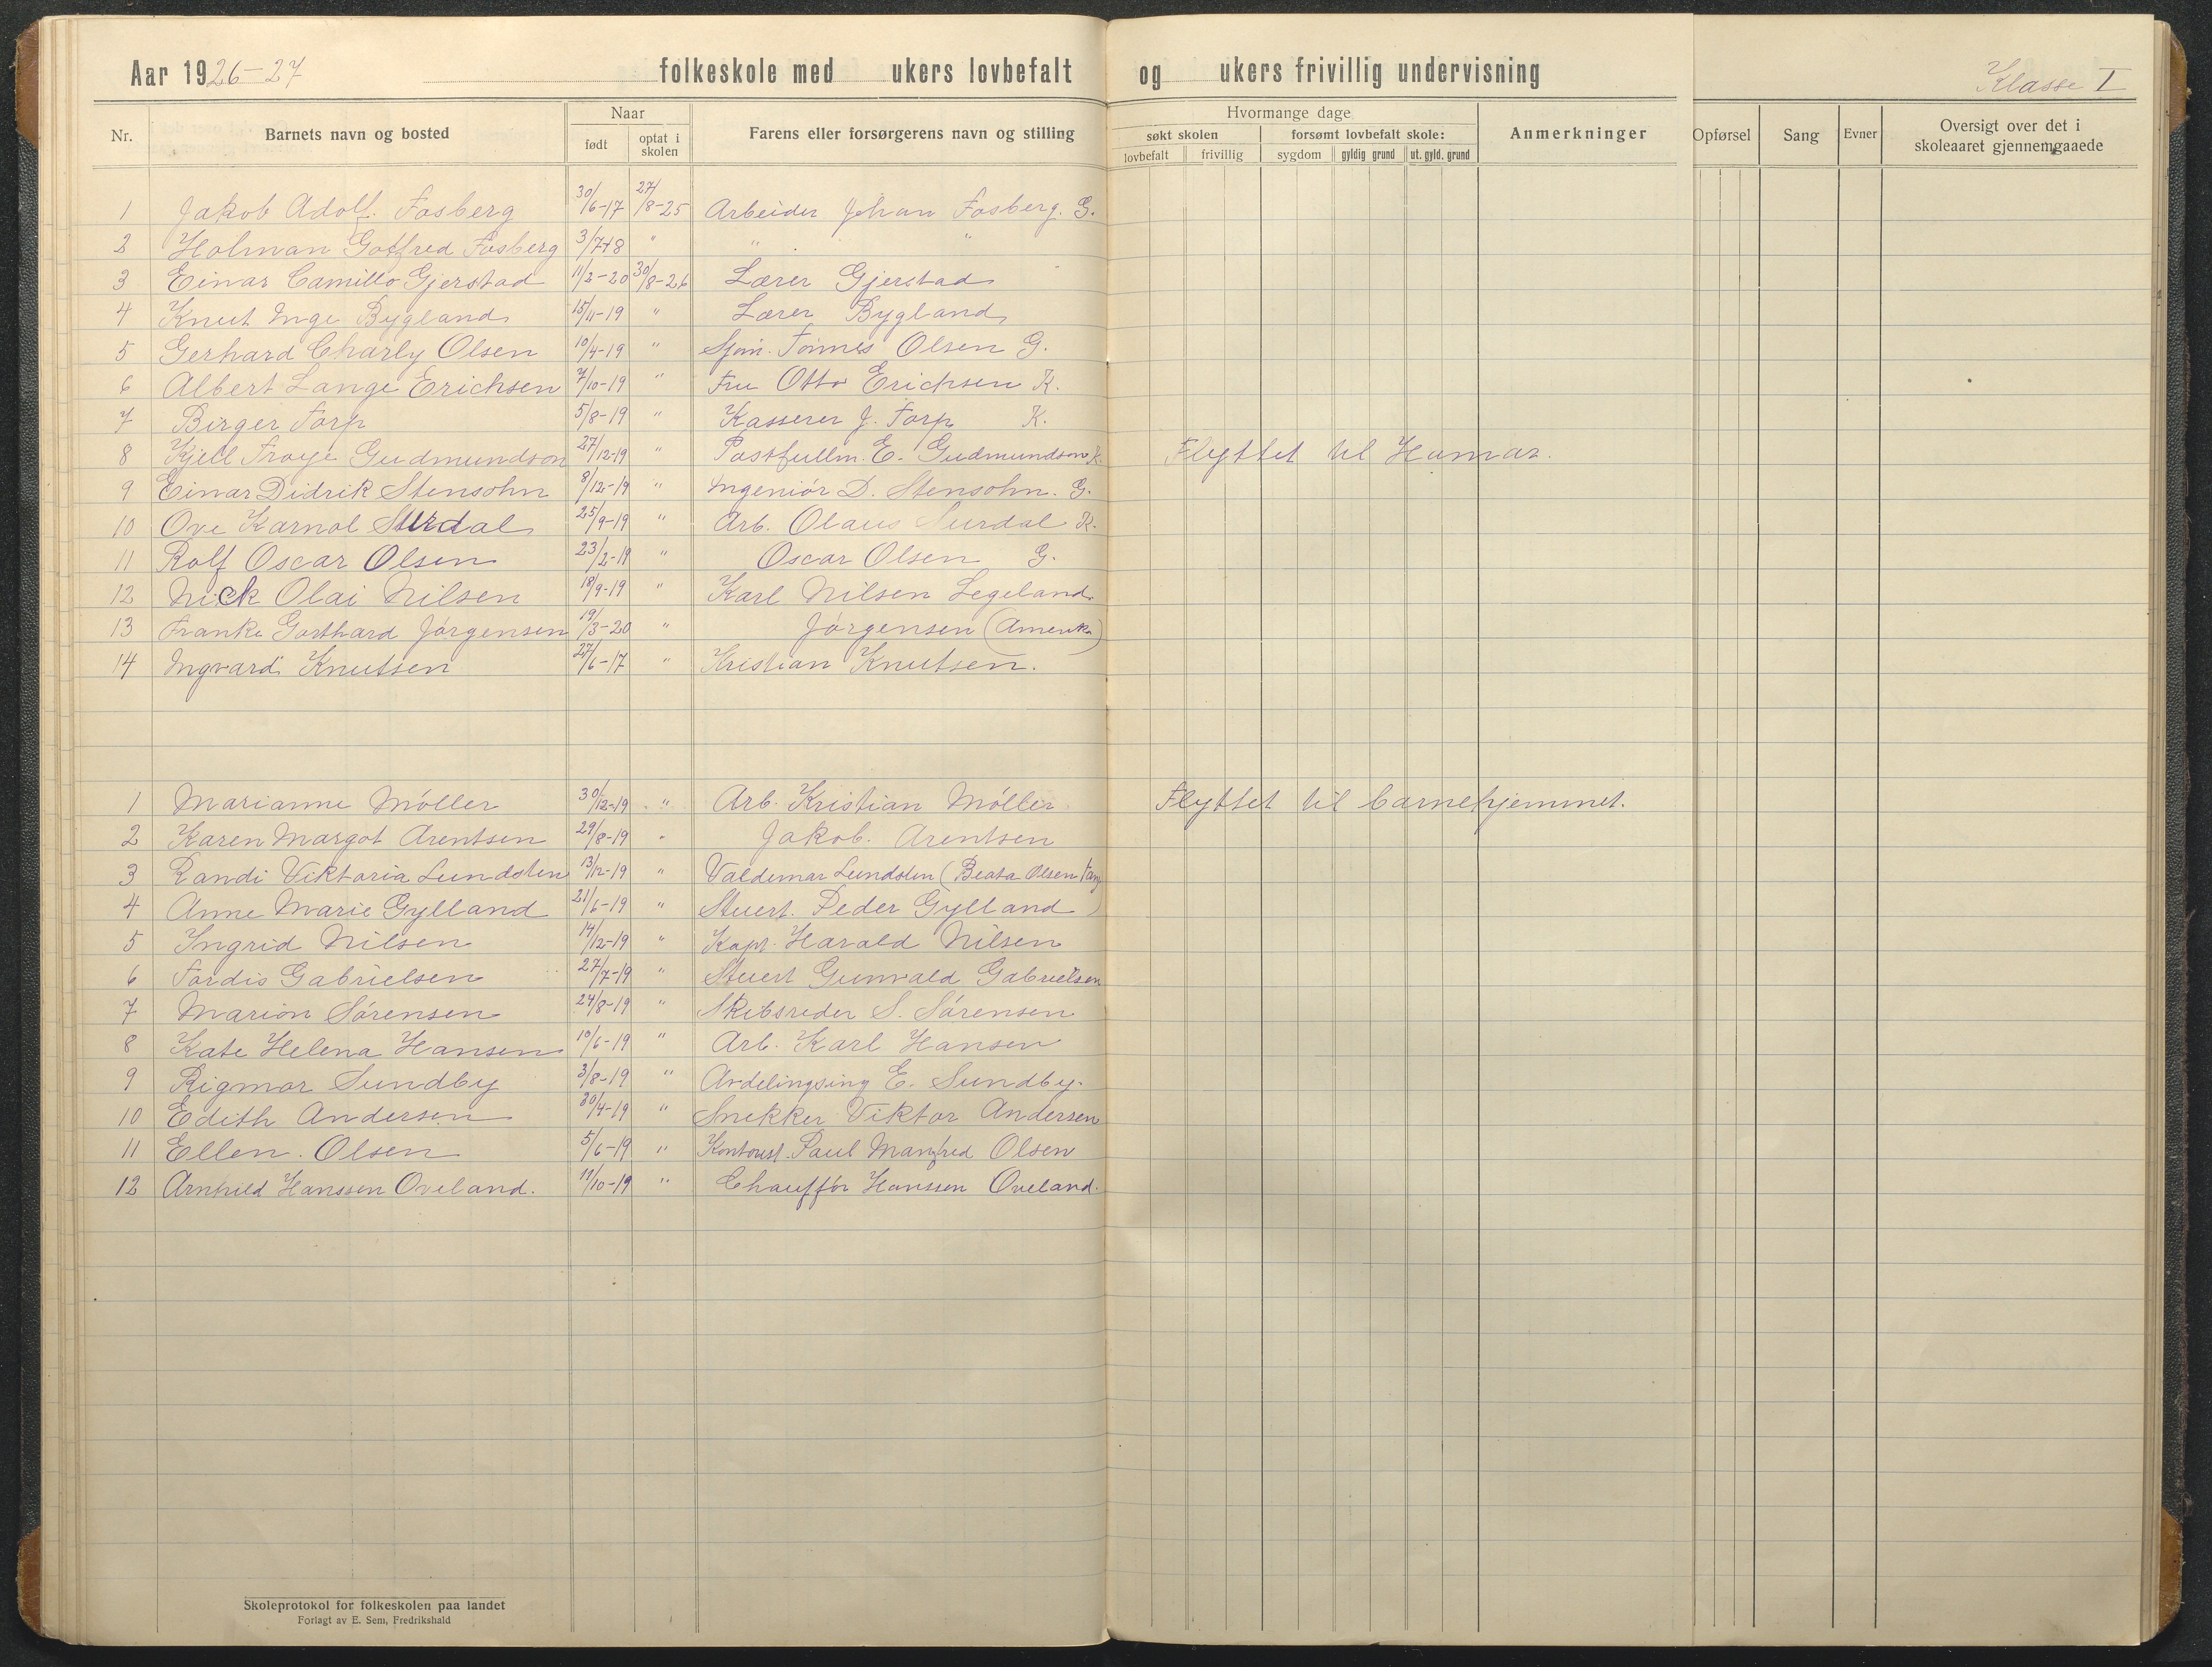 Aar 1926-27 folkeskole med ukers lovbefalt og ukers frivillig undervisning Klasse I
Nr. Barnets navn og bosted Naar født optat i skolen Farens eller forsørgerens navn og stilling Hvormange dage søkt skolen lovbefalt frivillig forsømt lovbefalt skole: sygdom gyldig grund ut. gyld. grund Anmerkninger Opførsel Sang Evner Oversigt over det i skoleaaret gjennemgaaede
1 Jakob Adolf. Fosberg 30/6-17 27/8-25 Arbeider Johan Fosberg. G.
2 Holman Gotfred Fosberg 3/7-18 " " "
3 Einar Camillo Gjerstad 11/2-20 30/8-26 Lærer Gjerstad
4 Knut Inge Bygland 15/11-19 " Lærer Bygland
5 Gerhard Charly Olsen 10/4-19 " Sjøm. Tønnes Olsen G.
6 Albert Lange Erichsen 7/10-19 " Fru Otto Erichsen K.
7 Birger Torp 5/8-19 " Kasserer J. Torp K.
8 Kjell Froye Gudmundson 27/12-19 " Postfullm. E. Gudmundson K. Flyttet til Hamar.
9 Einar Didrik Stensohn 8/12-19 " Ingeniör D. Stensohn. G.
10 Ove Karnol Surdal 25/9-19 " Arb. Olaus Surdal K.
11 Rolf Oscar Olsen 23/2-19 " Oscar Olsen G.
12 Nick Olai Nilsen 18/9-19 " Karl Nilsen Legeland.
13 Franke Gotthard Jörgensen 19/3-20 " Jörgensen (Amerika)
14 Ingvard Knutsen 27/6-17 " Kristian Knutsen.
1 Marianne Möller 30/12-19 " Arb. Kristian Möller Flyttet til barnehjemmet.
2 Karen Margot Arentsen 29/8-19 " Jakob. Arentsen
3 Randi Viktoria Lundsten 13/12-19 " Valdemar Lundsten (Beata Olsen
4 Anne Marie Gylland 21/6-19 " Stuert. Peder Gylland
5 Ingrid Nilsen 14/12-19 " Kapt. Harald Nilsen
6 Tordis Gabrielsen 27/7-19 " Stuert Gunvald Gabrielsen
7 Marion Sörensen 24/8-19 " Skibsreder S. Sörensen
8 Kate Helena Hansen 10/6-19 " Arb. Karl Hansen
9 Rigmor Sundby 3/8-19 " Avdelingsing E. Sundby.
10 Edith Andersen 30/4-19 " Snekker Viktor Andersen
11 Ellen. Olsen 5/6-19 " Kontorist. Paul Manfred Olsen
12 Arnhild Hanssen Oveland. 11/10-19 " Chauffør Hanssen Oveland.
Skoleprotokol for folkeskolen paa landet
Forlagt av E. Sem, Fredrikshald